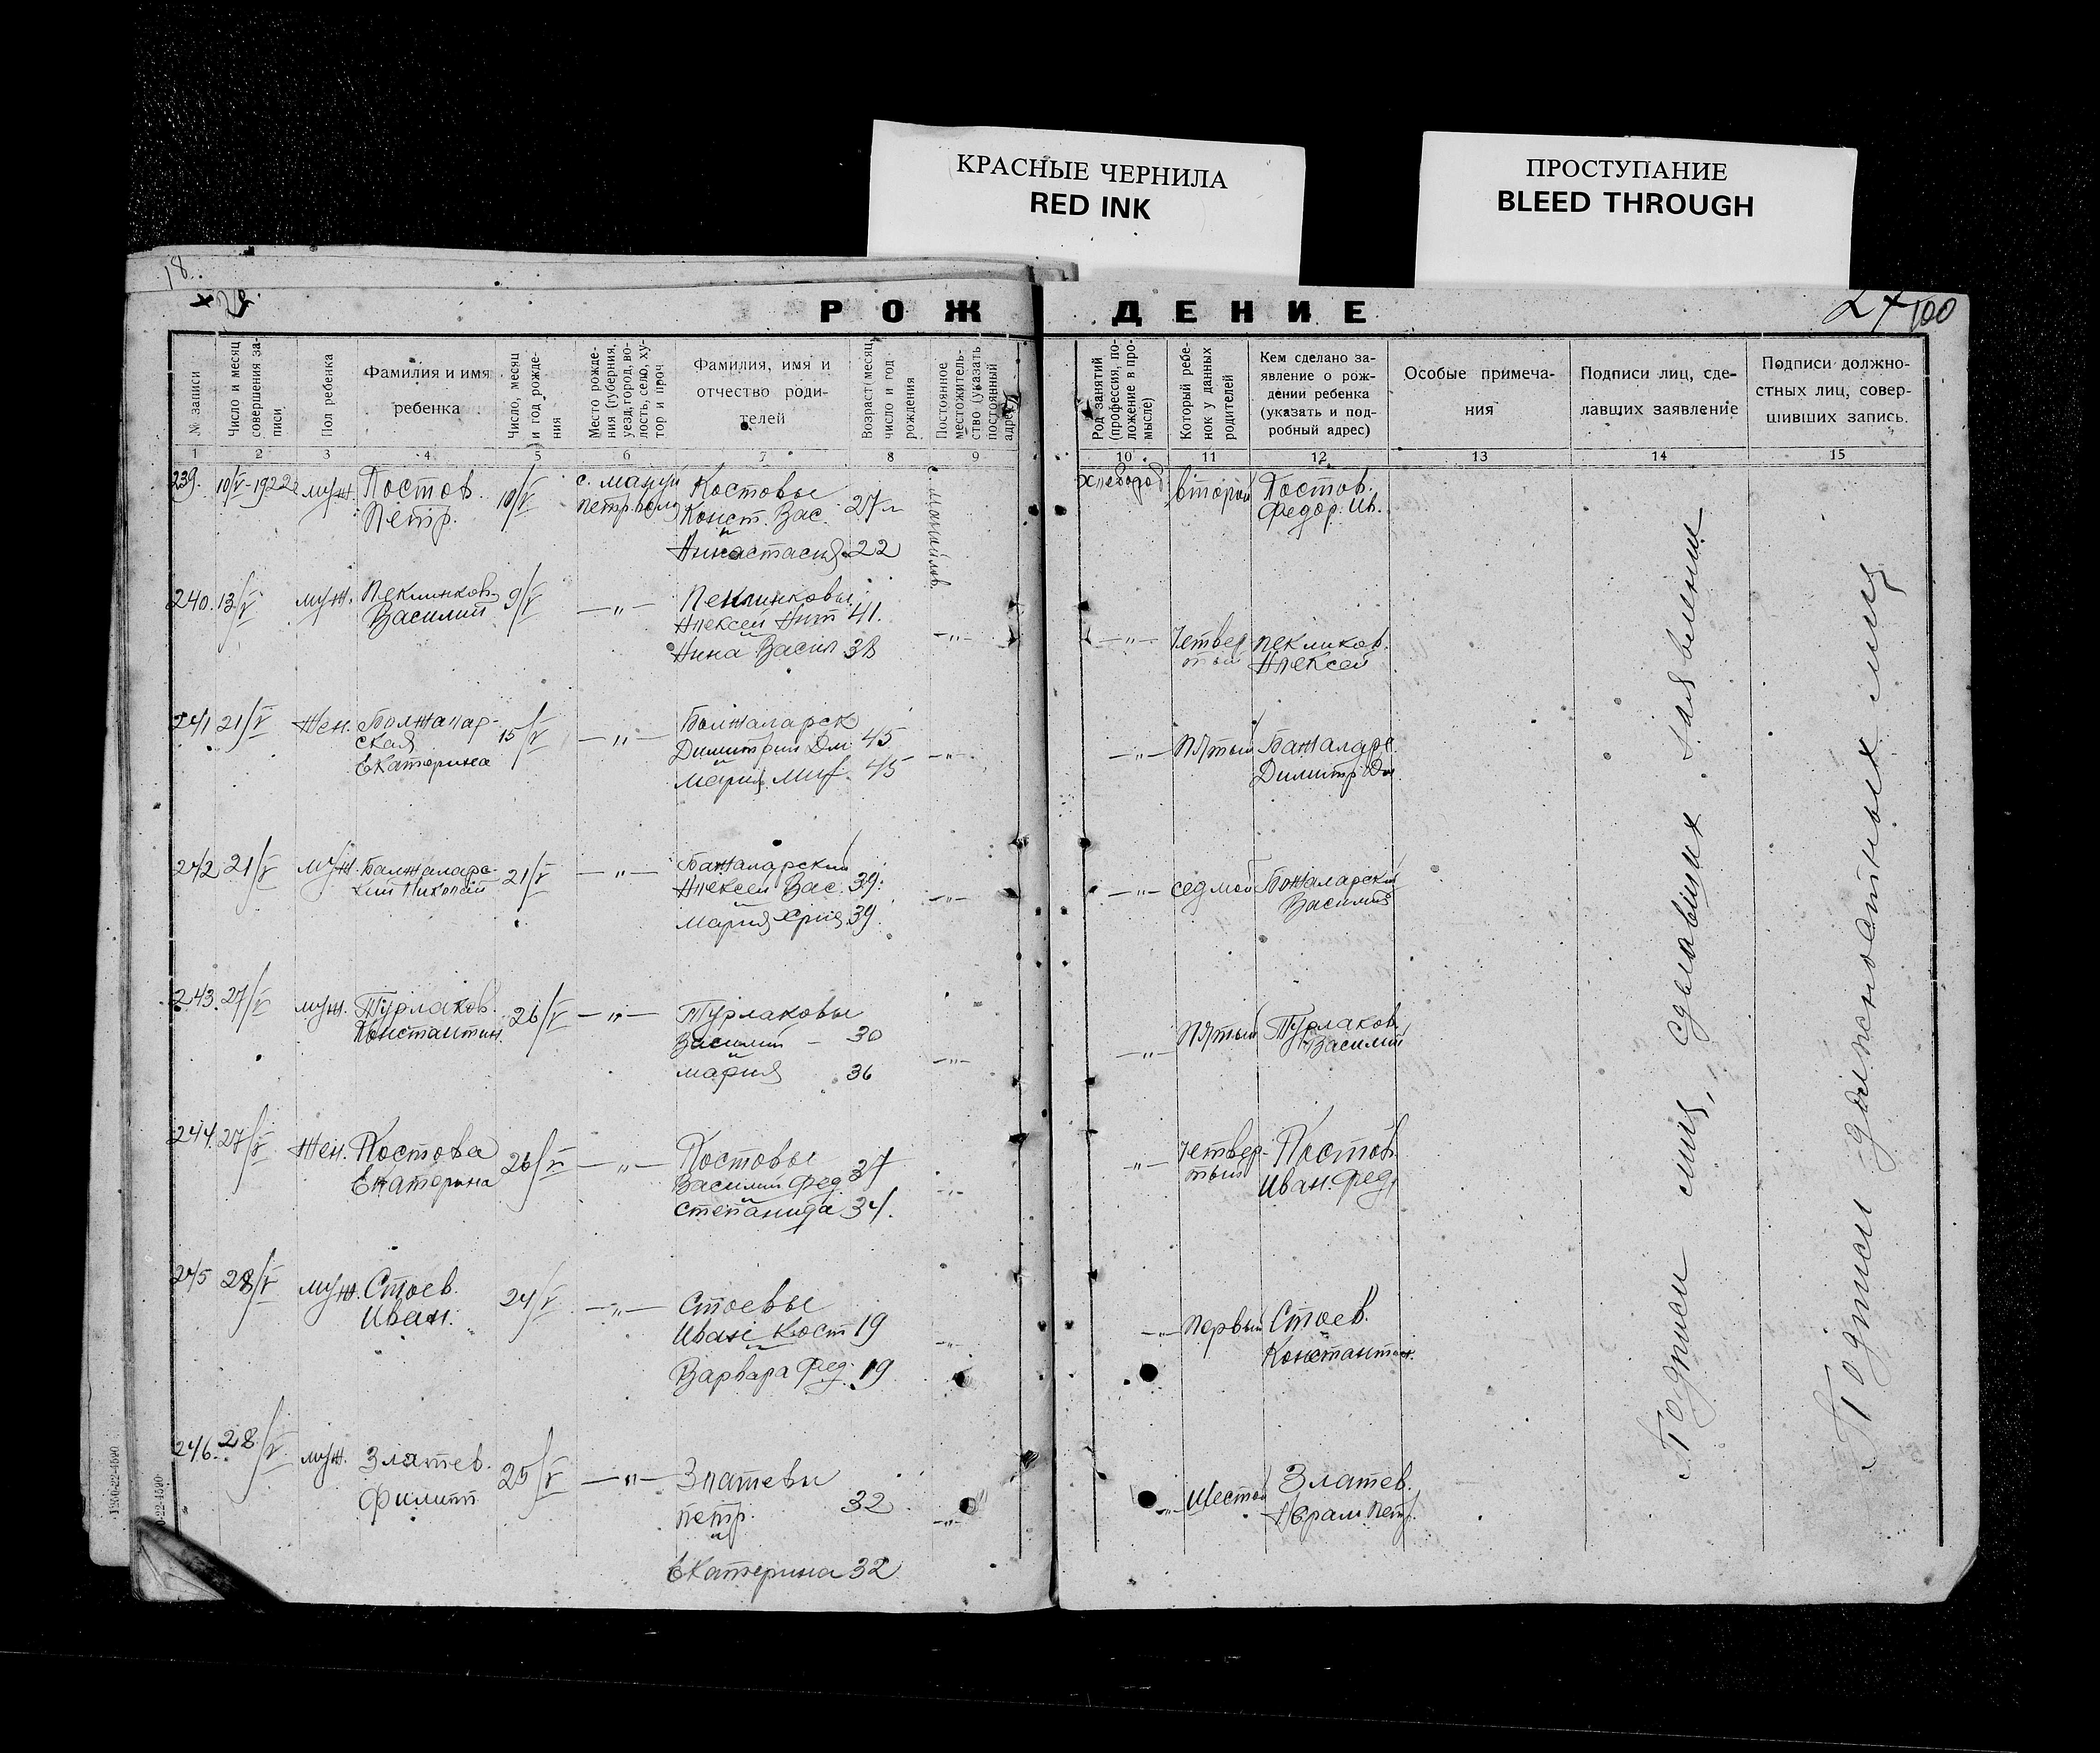 КРАСНЫЕ ЧЕРНИЛА
RED INK
ПРОСТУПАНИЕ
BLEED THROUGH
18.
РОЖДЕНИЕ
100
№ записи
Число и месяц совершения записи
Пол ребенка
Фамилия и имя ребенка
Число, месяц и год рождения
Место рождения (губерния, уезд, город, волость, село, хутор и проч.
Фамилия, имя и отчество родителей
Возраст (месяц, число и год рождения
Постоянное местожительство (указать постоянный адрес)
Род занятий (профессия, положение в промысле)
Который ребенок у данных родителей
Кем сделано заявление о рождении ребенка (указать и подробный адрес)
Особые примечания
Подписи лиц, сделавших заявление
Подписи должностных лиц, совершивших запись.
1 2 3 4 5 6 7 8 9 10 11 12 13 14 15
239. 10/V-1922 муж. Костов 10/V с. Мануй Костовы 27 л второй Костов.
Петр. Конст. Вас. Федор. Ив.
и
Анастасия 22
240. 13/V муж. Пеклинков 9/V —"— Пеклинковы
Василий Алексей 41. —"— —"— Четвер Пекликов.
и тый Алексей
Анна Васил 38
241 21/V Жен. Болжалар- 15/V —"— Болжаларск
ская Димитрий Дм 45 —"— —"— Пятый Бажаларс
Екатерина и Димитр Дм
Мария Миф. 45
242 21/V муж. Балжаларс- 21/V —"— Бажаларский
кий Николай Алексей Вас. 39. —"— —"— седмой Божаларский
и Василий
Мария 39.
243. 27/V муж. Турлаков. 26/V —"— Турлаковы
Константин Василий — 30 —"— —"— Пятый Турлаков
и Василий
Мария 36
244. 27/V Жен. Костова 26/V —"— Костовы —"— Четвер- Костов
Екатерина Василий Фед. 37 —"— тый Иван. Фед.
и
Степанида 34.
245 28/V муж. Стоев. 24/V —"— Стоевы
Иван. Иван Конст 19 —"— —"— Первый Стоев.
и Константин.
Варвара Фед. 19
246. 28/V муж. Златев. 25/V —"— Златевы —"— Шестой Златев.
Филипп Петр. 32 —"— Петр.
и
Екатерина 32
Подписи лиц, сделавших заявление
Подписи должностных лиц
1300-22-4590